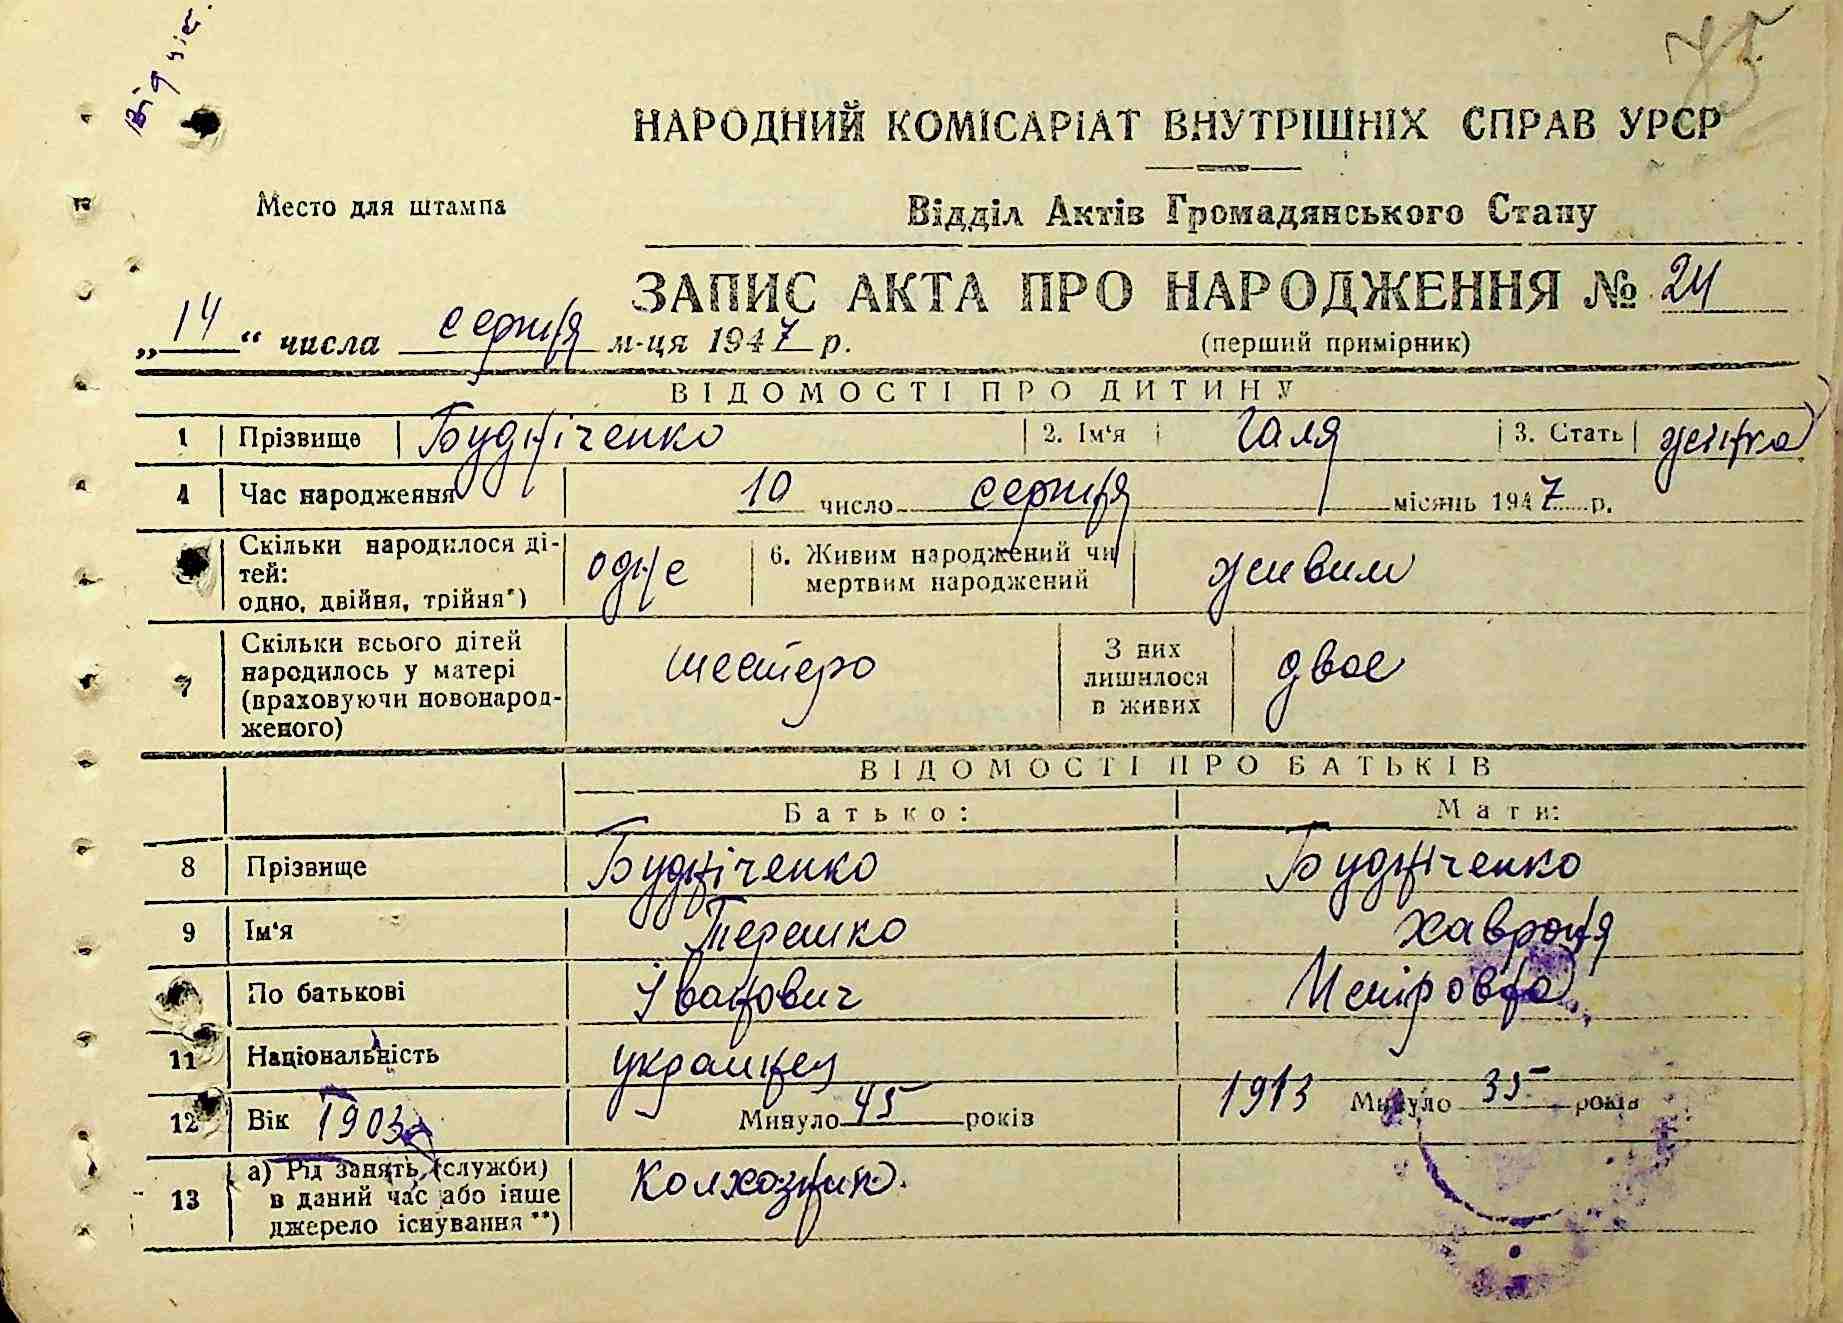 Від
75
НАРОДНИЙ КОМІСАРІАТ ВНУТРІШНІХ СПРАВ УРСР
Место для штампа
Відділ Актів Громадянського Стану
ЗАПИС АКТА ПРО НАРОДЖЕННЯ № 24
„14“ числа серпня м-ця 1947 р.
(перший примірник)
ВІДОМОСТІ ПРО ДИТИНУ
1 Прізвище Будніченко 2. Ім'я Галя 3. Стать жінка
4 Час народження 10 число серпня місяць 1947 р.
Скільки народилося ді-
тей:
одно, двійня, трійня*) одне 6. Живим народжений чи
мертвим народжений живим
7 Скільки всього дітей
народилось у матері
(враховуючи новонарод-
женого) шестеро З них
лишилося
в живих двое
ВІДОМОСТІ ПРО БАТЬКІВ
Батько: Мати:
8 Прізвище Будніченко Будніченко
9 Ім'я Терешко Хавроня
По батькові Іванович
11 Національність українец
12 Вік 1903 Минуло 45 років 1913 Минуло 35 років
13 а) Рід занять (служби)
в даний час або інше
джерело існування **) Колхозник.